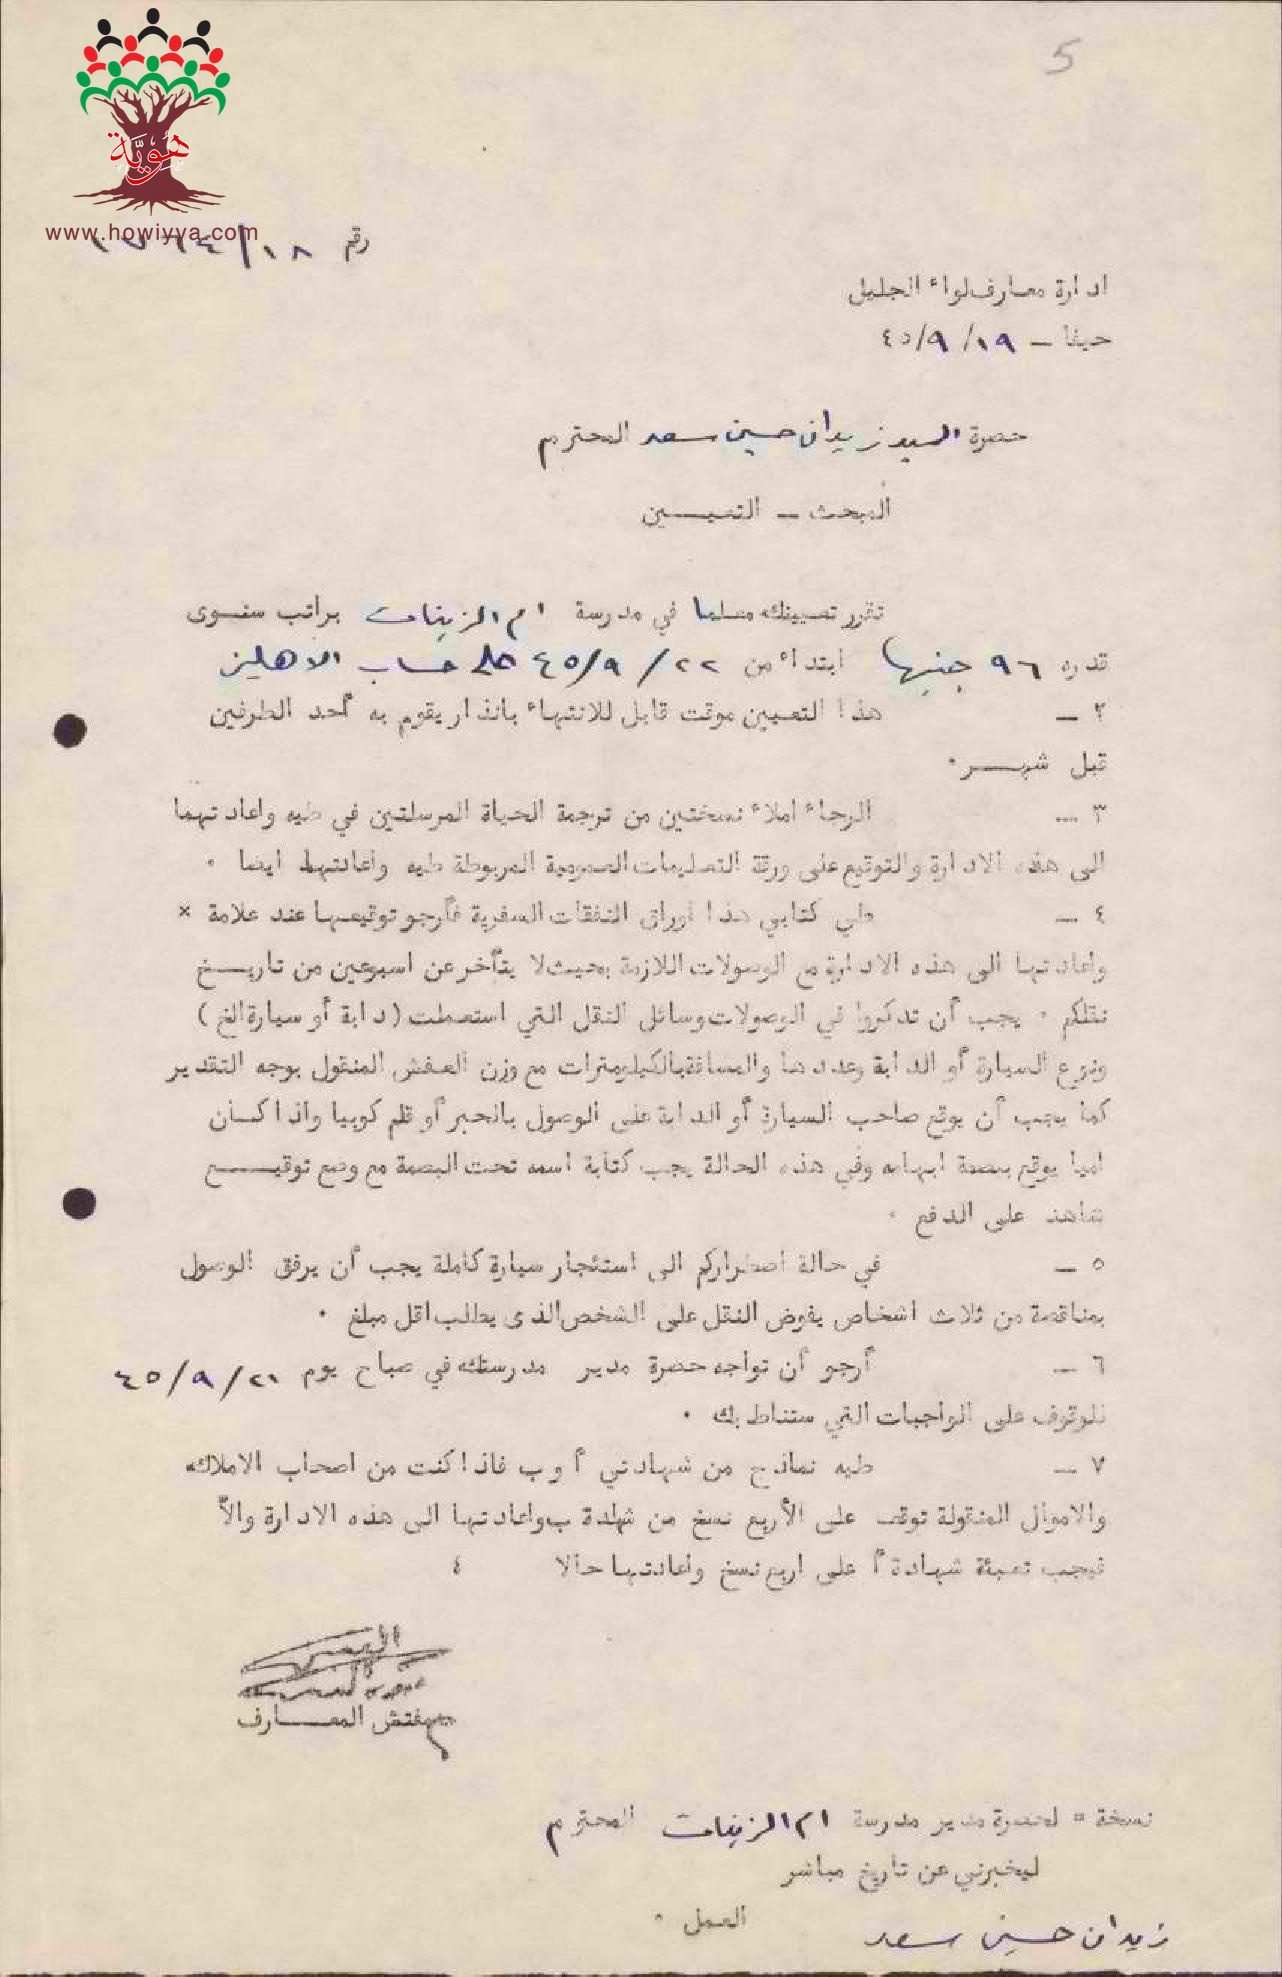 5
هوية
www.howiyya.com
رقم ١٨/
ادارة معارف لواء الجليل
حيفا – ١٩/ ٩/ ٤٥
حضرة السيد زيدان حسين سعد المحترم
المبحث – التعيــــين
تقرر تعيينك معلما في مدرسة ام الزينات براتب سنوى
قدره ٩٦ جنيها ابتداء من ٢٢/ ٩/ ٤٥ على حساب الاهلين
٢ – هذا التعيين موقت قابل للانتهاء بانذار يقوم به أحد الطرفين
قبل شهـــر ٠
٣ – الرجاء املاء نسختين من ترجمة الحياة المرسلتين في طيه واعادتهما
الى هذه الادارة والتوقيع على ورقة التعليمات العمومية المربوطة طيه واعادتها ايضا ٠
٤ – طي كتابي هذا اوراق النفقات السفرية فأرجو توقيعها عند علامة ×
واعادتها الى هذه الادارة مع الوصولات اللازمة بحيث لا يتأخر عن اسبوعين من تاريــخ
نقلكم ٠ يجب أن تذكروا في الوصولات وسائل النقل التي استعملت (دابة أو سيارة الخ)
ونوع السيارة أو الدابة وعددها والمسافة بالكيلومترات مع وزن العفش المنقول بوجه التقدير
كما يجب أن يوقع صاحب السيارة أو الدابة على الوصول بالحبر أو قلم كوبيا واذا كــان
اميا يوقع ببصمة ابهامه وفي هذه الحالة يجب كتابة اسمه تحت البصمة مع وضع توقيــــع
شاهد على الدفع ٠
٥ – في حالة اضطراركم الى استئجار سيارة كاملة يجب أن يرفق الوصول
بمناقصة من ثلاث اشخاص يفوض النقل على الشخص الذى يطلب اقل مبلغ ٠
٦ – أرجو أن تواجه حضرة مدير مدرستك في صباح يوم ٢١/ ٩/ ٤٥
للوقوف على الواجبات التي ستناط بك ٠
٧ – طيه نماذج من شهادتي أ وب فاذا كنت من اصحاب الاملاك
والاموال المنقولة توقع على الأربع نسخ من شهادة ب واعادتها الى هذه الادارة والاّ
فيجب تعبئة شهادة أ على اربع نسخ واعادتها حالا ٤
مفتش المعــــارف
نسخة = لحضرة مدير مدرسة ام الزينات المحترم
ليخبرني عن تاريخ مباشر
العمل ٠
زيدان حسين سعد